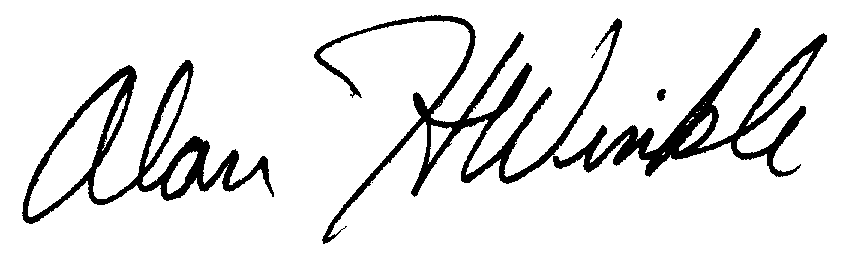 Alan H Winkle